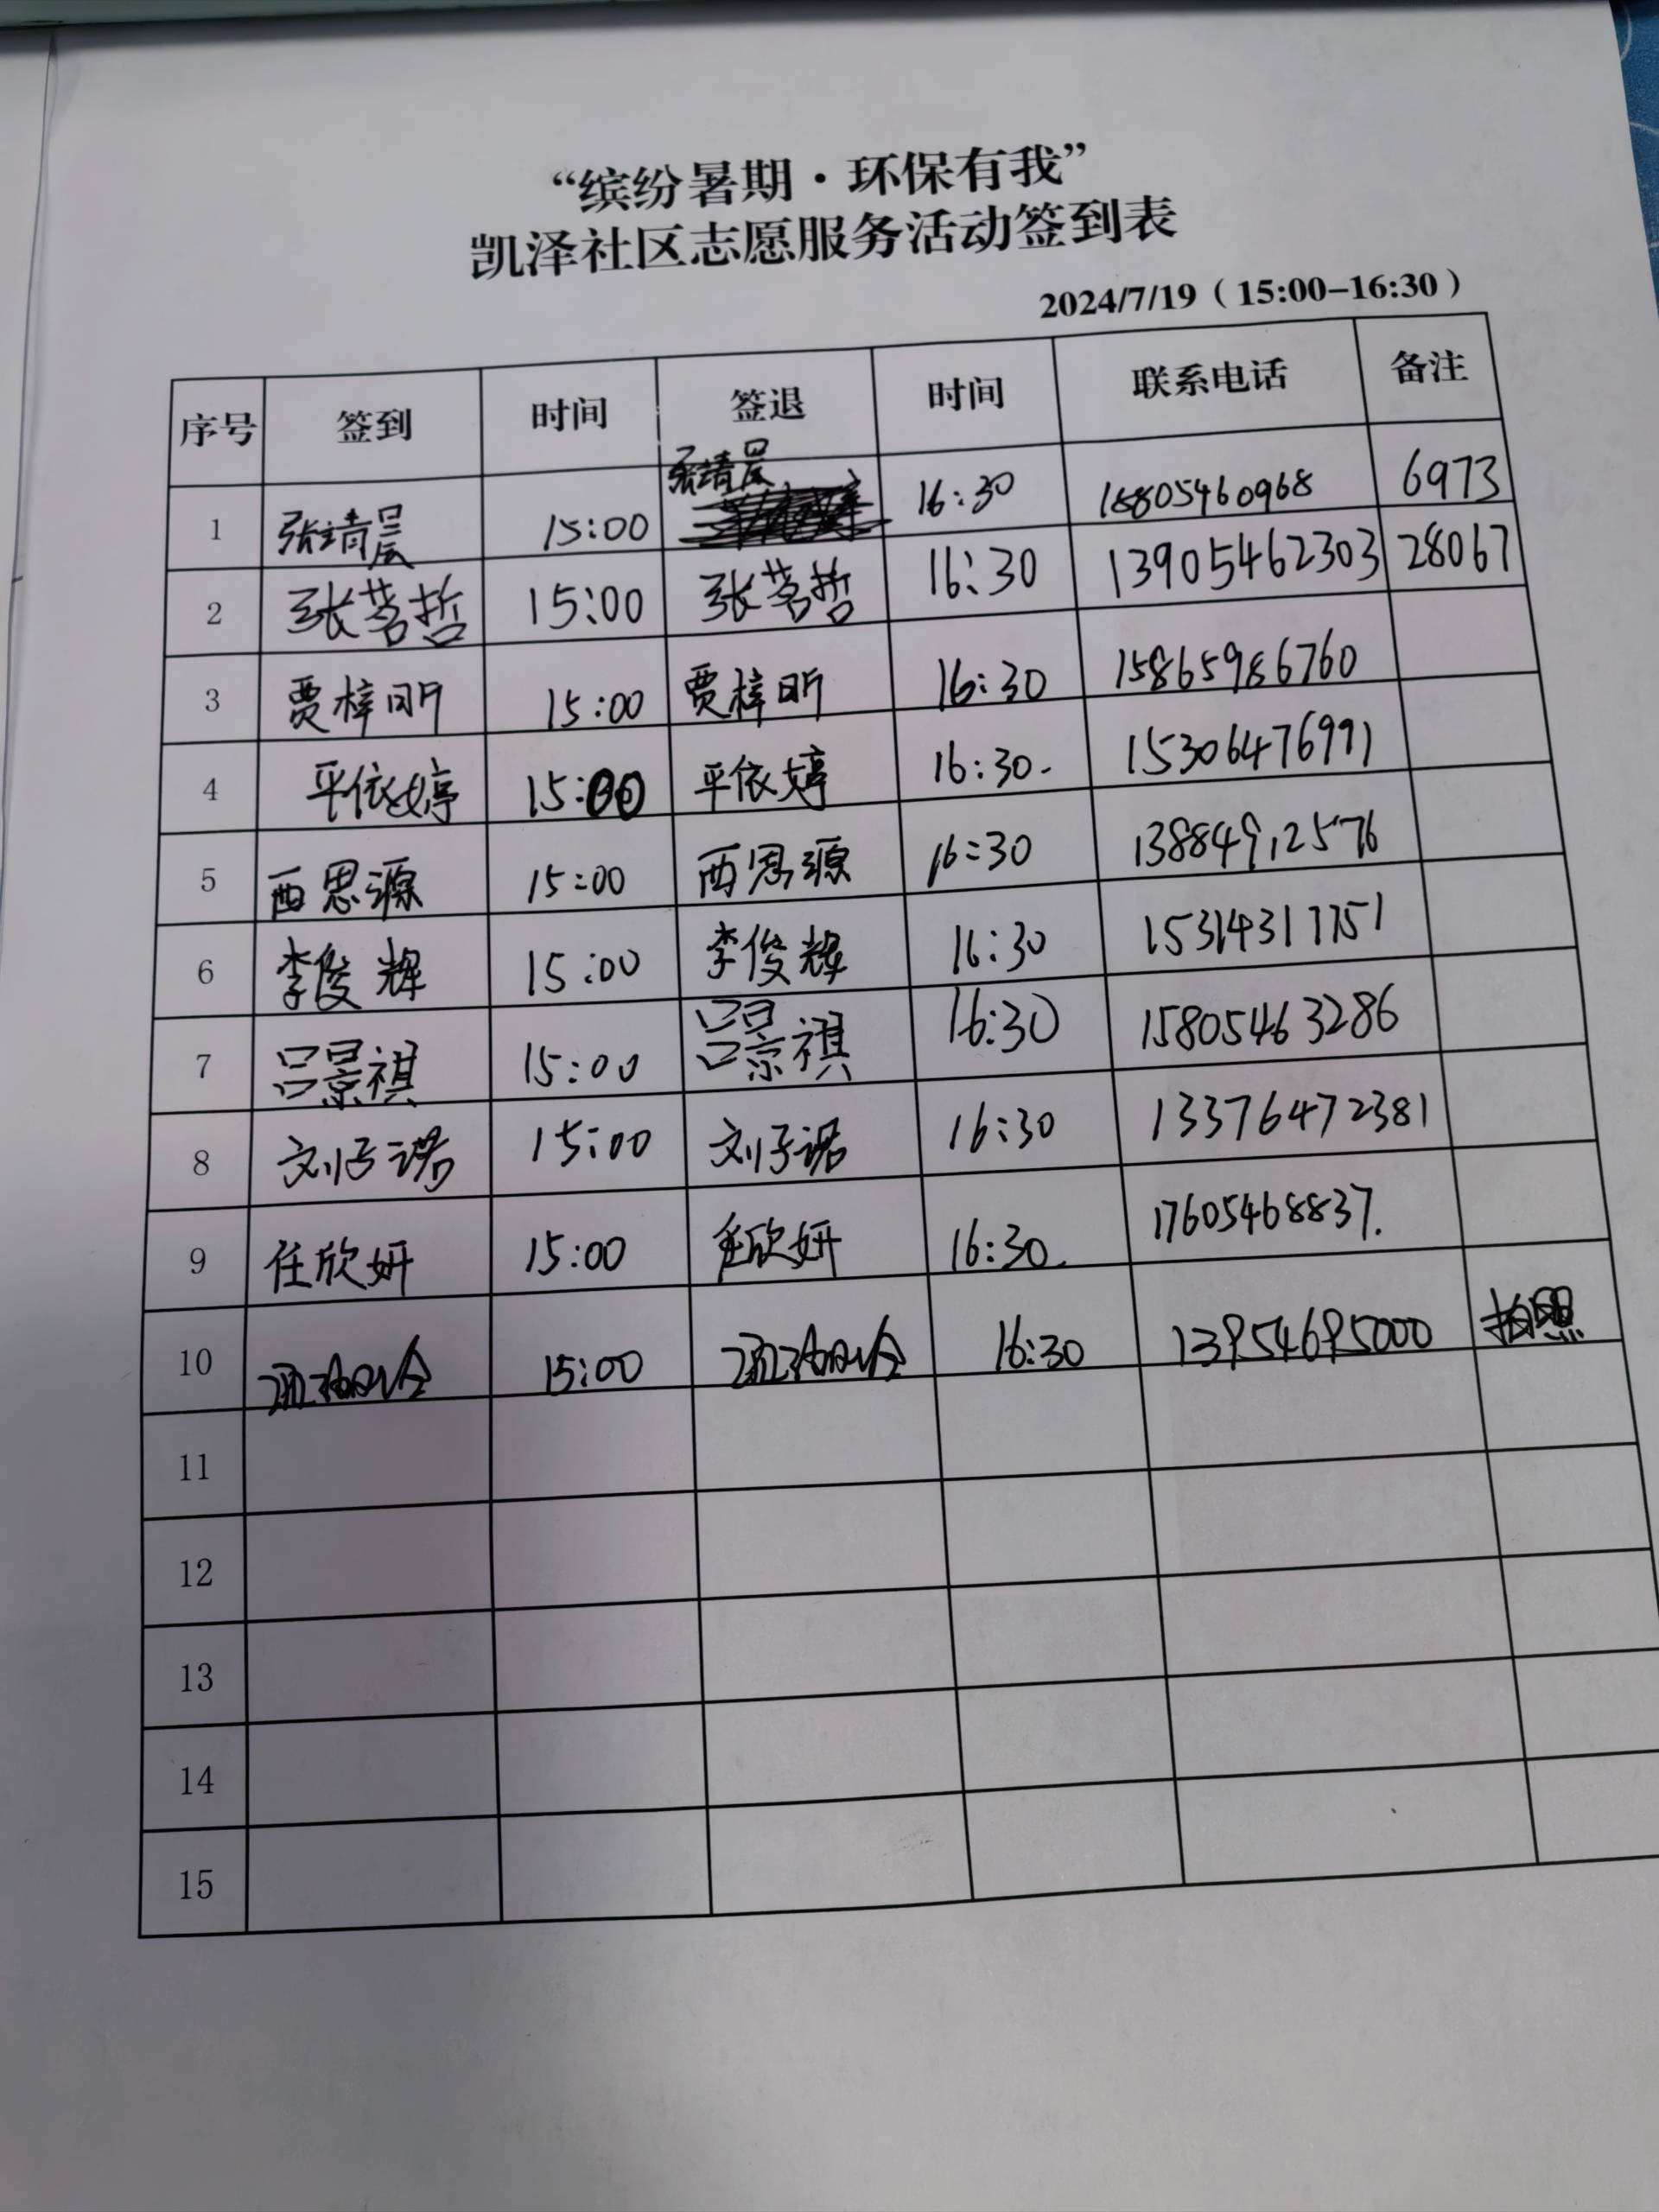 “缤纷暑期·环保有我”
凯泽社区志愿服务活动签到表
2024/7/19（15:00-16:30）
序号 签到 时间 签退 时间 联系电话 备注
1 张靖晨 15:00 张靖晨 16:30 18805460968 6973
2 张茗哲 15:00 张茗哲 16:30 13905462303 28067
3 贾梓昕 15:00 贾梓昕 16:30 15865986760
4 平依婷 15:00 平依婷 16:30. 15306476991
5 西思源 15:00 西思源 16:30 13884912576
6 李俊辉 15:00 李俊辉 16:30 15314311751
7 吕景祺 15:00 吕景祺 16:30 15805463286
8 刘子诺 15:00 刘子诺 16:30 13376472381
9 任欣妍 15:00 任欣妍 16:30. 17605468837.
10 15:00 16:30 13954695000 拍照
11
12
13
14
15